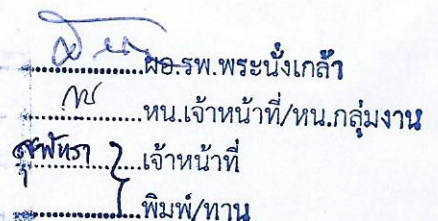 ผอ.รพ.พระนั่งเกล้า
หน.เจ้าหน้าที่/หน.กลุ่มงาน
สุพัทรา เจ้าหน้าที่
พิมพ์/ทาน